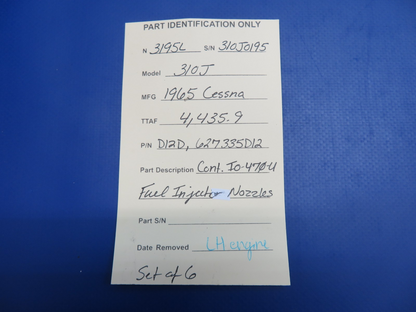 PART IDENTIFICATION ONLY
N 3195L S/N 310J0195
Model 310J
MFG 1965 Cessna
TTAF 4,435.9
P/N D12D, 627335D12
Part Description Cont. IO-470-U
Fuel Injector Nozzles
Part S/N
Date Removed LH engine
Set of 6